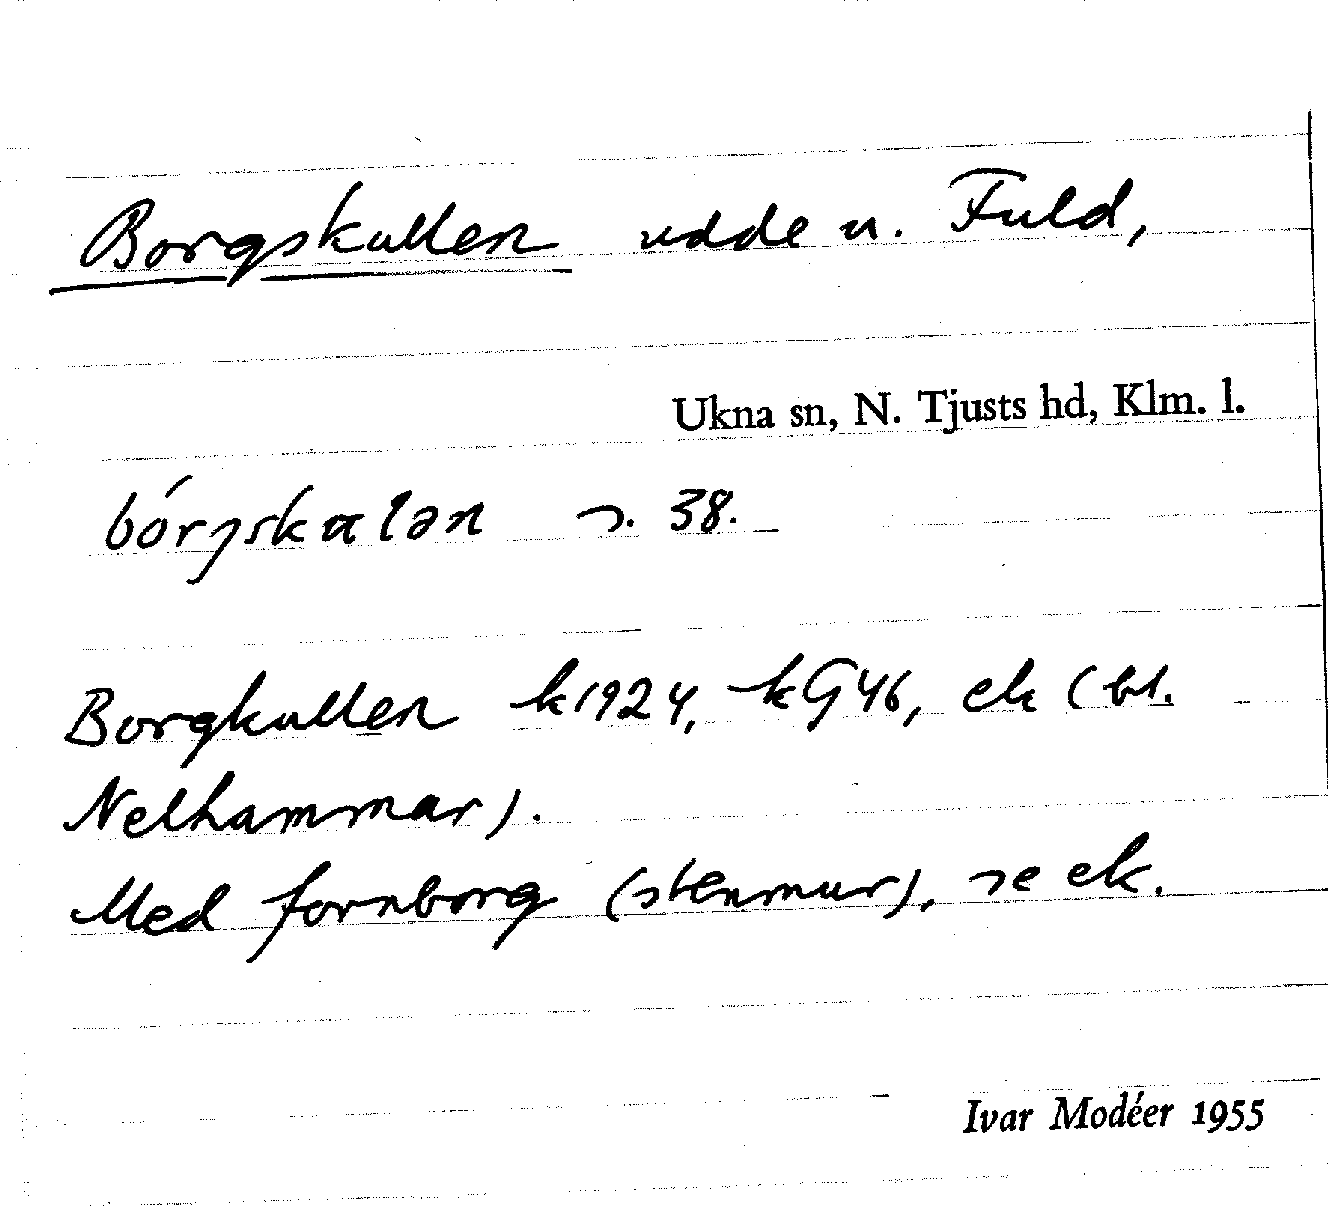 Borgskullen udde u. Fuld,
Ukna sn, N. Tjusts hd, Klm. l.
bórjskalən s. 38.
Borgkullen k1924, kG46, ek (bl.
Nelhammar).
Med fornborg (stenmur), se ek.
Ivar Modéer 1955